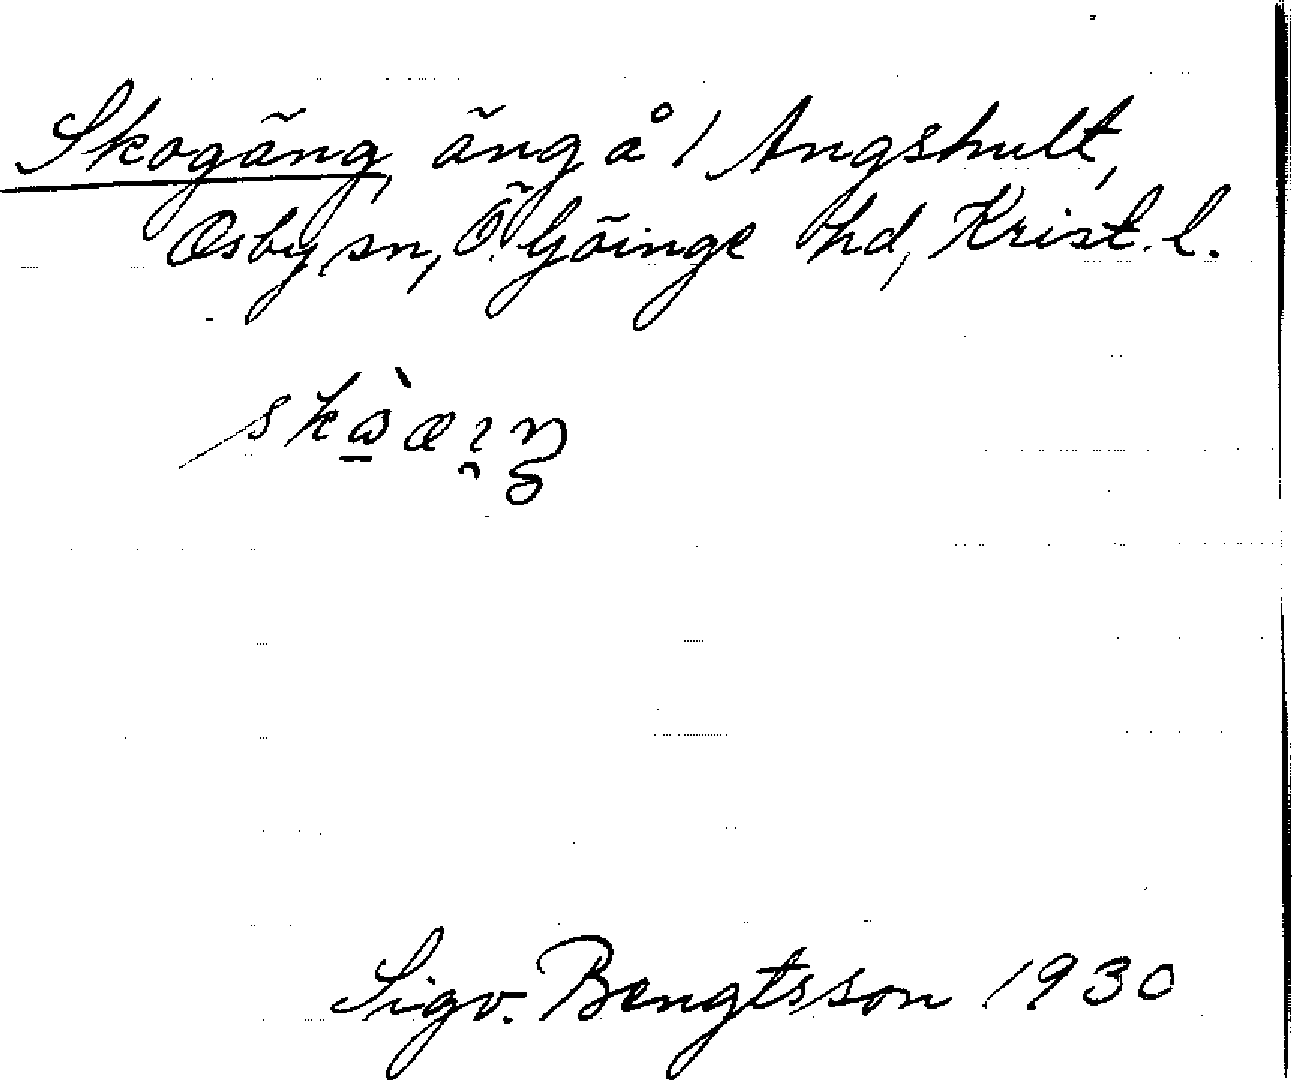 Skogäng, äng å 1 Angshult,
Osby sn, Ö. Göinge hd, Krist. l.
Sigv. Bengtsson 1930